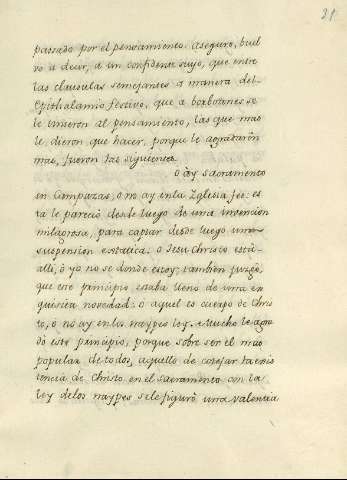 21
passado por el pensamiento. aseguro, buel
vo à decir, à un confidente suyo, que entre
las clausulas semejantes a manera del
Epithalamio festivo, que à borbotones se
le vinieron al pensamiento, las que mas
le dieron que hacer, porque le agradaron
mas, fueron las siguientes.
O ày sacramento
en Campazas, ò no ay en la Iglesia fee: es
ta le pareciò desde luego de una invencion
milagrosa, para captar desde luego una
suspension extatica. O Jesu Christo està
alli, ò yo no se donde estoy; tambien juzgò,
que este principio estaba lleno de una ex
quisita novedad: O aquel es cuerpo de Chris
to, ò no ay en los naypes ley. Mucho le agra
dò este principio, porque sobre ser el mas
popular de todos, aquello de cotejar la exis
tencia de Christo en el sacramento con la
ley de los naypes se le figurò una valentia